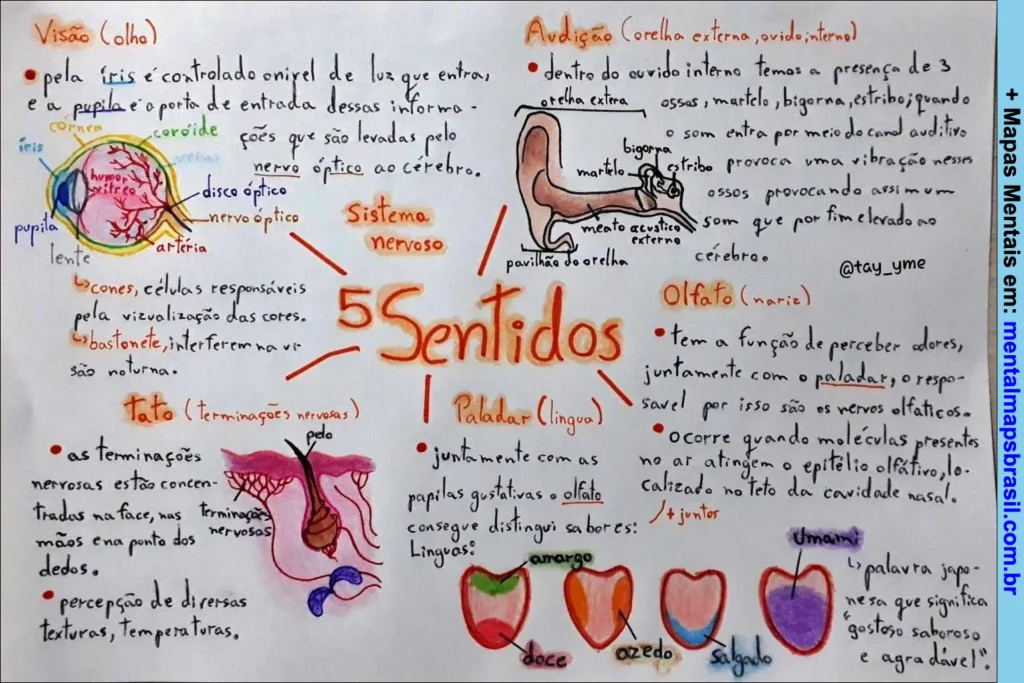 Visão (olho)
• pela íris é controlado o nível de luz que entra,
e a pupila é a porta de entrada dessas informa-
ções que são levadas pelo
nervo óptico ao cérebro.
córnea
coróide
íris
humor
vítreo
disco óptico
nervo óptico
pupila
lente
artéria
↳cones, células responsáveis
pela vizualização das cores.
↳bastonete, interferem na vi-
são noturna.
Audição (orelha externa, ouvido interno)
• dentro do ouvido interno temos a presença de 3
ossos, martelo, bigorna, estribo; quando
o som entra por meio do canal auditivo
provoca uma vibração nesses
ossos provocando assim um
som que por fim e levado ao
cérebro.
orelha extera
bigorna
martelo
estribo
meato acustico
externo
pavilhão do orelha
@tay_yme
Sistema
nervoso
5 Sentidos
Olfato (nariz)
• tem a função de perceber odores,
juntamente com o paladar, o respo-
savel por isso são os nervos olfaticos.
• ocorre quando moléculas presentes
no ar atingem o epitélio olfátivo, lo-
calizado no teto da cavidade nasal.
+ juntos
Tato (terminações nervosas)
• as terminações
nervosas estão concen-
tradas na face, nas
mãos e na ponta dos
dedos.
• percepção de diversas
texturas, temperaturas.
pelo
terminações
nervosas
Paladar (lingua)
• juntamente com as
papilas gustativas o olfato
consegue distingui sabores:
Linguas:
amargo
doce
azedo
salgado
Umami
↳ palavra japo-
nesa que significa
"gostoso saboroso
e agradável".
+ Mapas Mentais em: mentalmapsbrasil.com.br